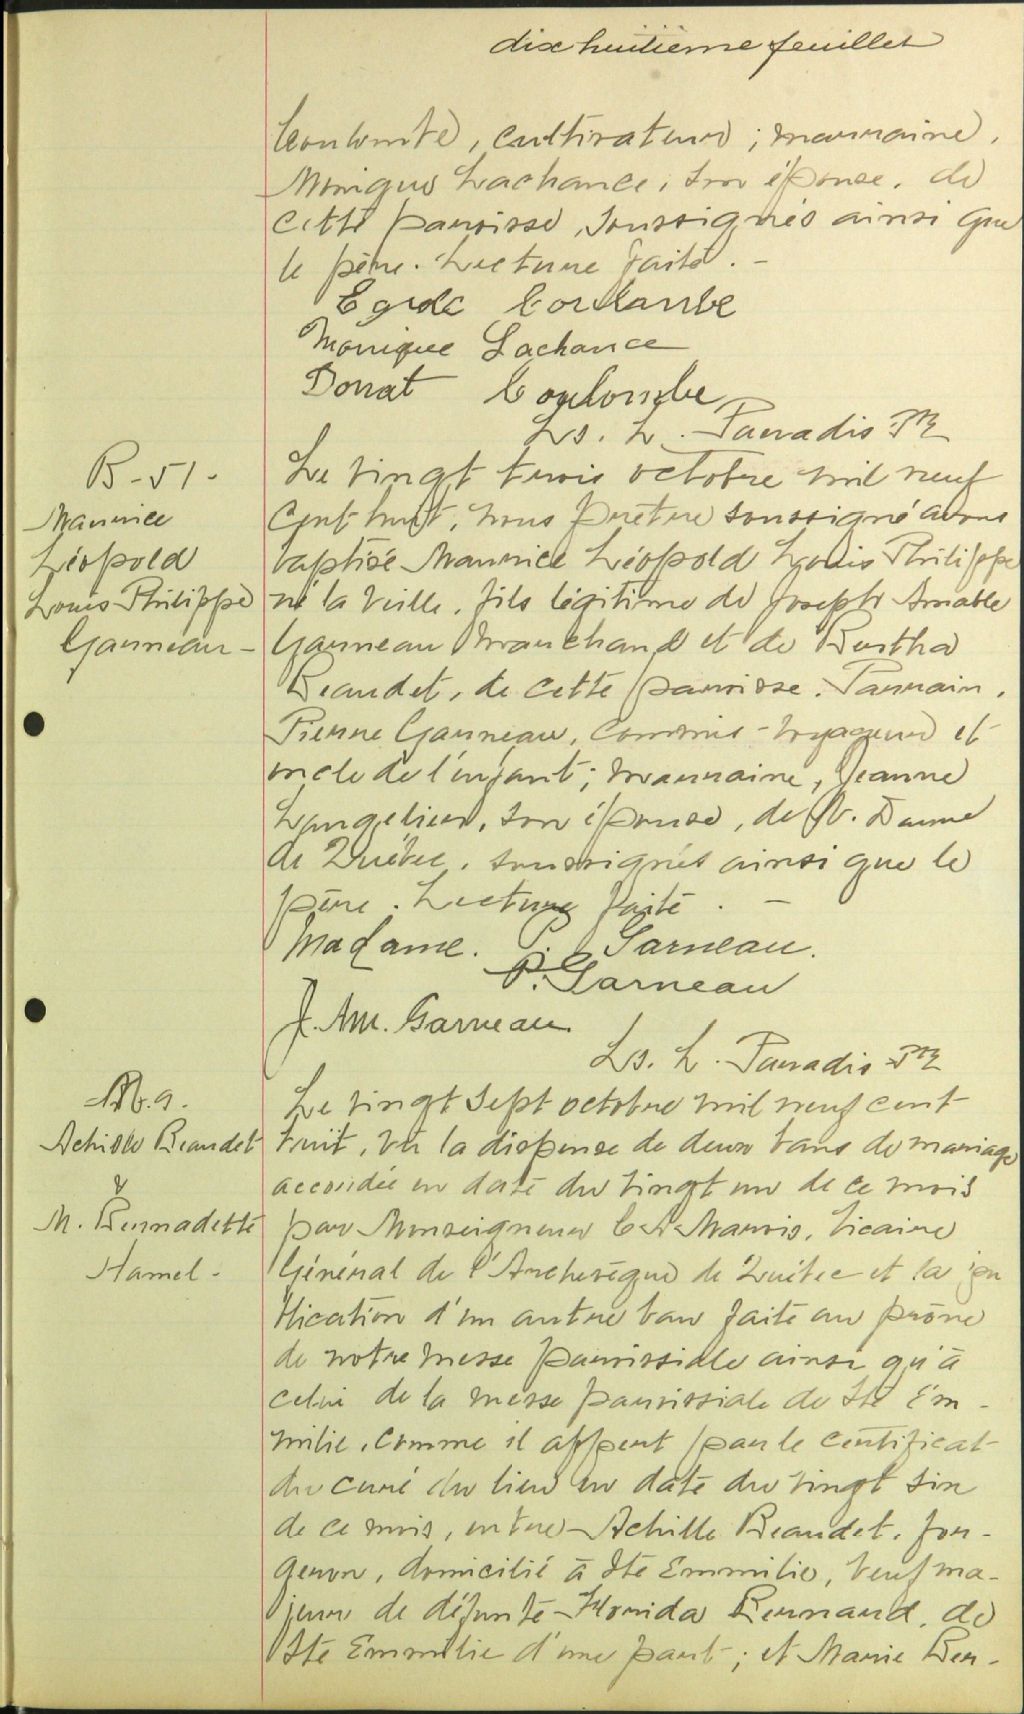 dix huitième feuillet
Coulombe, cultivateur ; marraine,
Monique Lachance, son épouse, de
cette paroisse, soussignés ainsi que
le père. Lecture faite. -
Egide Coulombe
Monique Lachance
Donat Coulombe
Ls. L. Paradis Ptre
B-51-
Maurice
Léopold
Louis Philippe
Garneau-
Le vingt trois octobre mil neuf
cent huit, nous prêtre soussigné avons
baptisé Maurice Léopold Louis Philippe
né la veille, fils légitime de Joseph Amable
Garneau marchand et de Bertha
Beaudet, de cette paroisse. Parrain,
Pierre Garneau, commis-voyageur et
oncle de l'enfant ; marraine, Jeanne
Langelier, son épouse, de N. Dame
de Québec, soussignés ainsi que le
père. Lecture faite. -
Madame. P. Garneau.
P. Garneau
J. Am. Garneau
Ls. L. Paradis Ptre
M. 9.
Achille Beaudet
&
M. Bernadette
Hamel-
Le vingt sept octobre mil neuf cent
huit, vu la dispense de deux bans de mariage
accordée en date du vingt un de ce mois
par Monseigneur C. A. Marois, Vicaire
Général de l'Archevêque de Québec et la pu
blication d'un autre ban faite au prône
de notre messe paroissiale ainsi qu'à
celui de la messe paroissiale de Ste Em-
milie, comme il appert par le certificat
du curé du lieu en date du vingt six
de ce mois, entre Achille Beaudet, for-
geron, domicilié à Ste Emmilie, veuf ma-
jeur de défunte Florida Bernard, de
Ste Emmilie d'une part ; et Marie Ber-